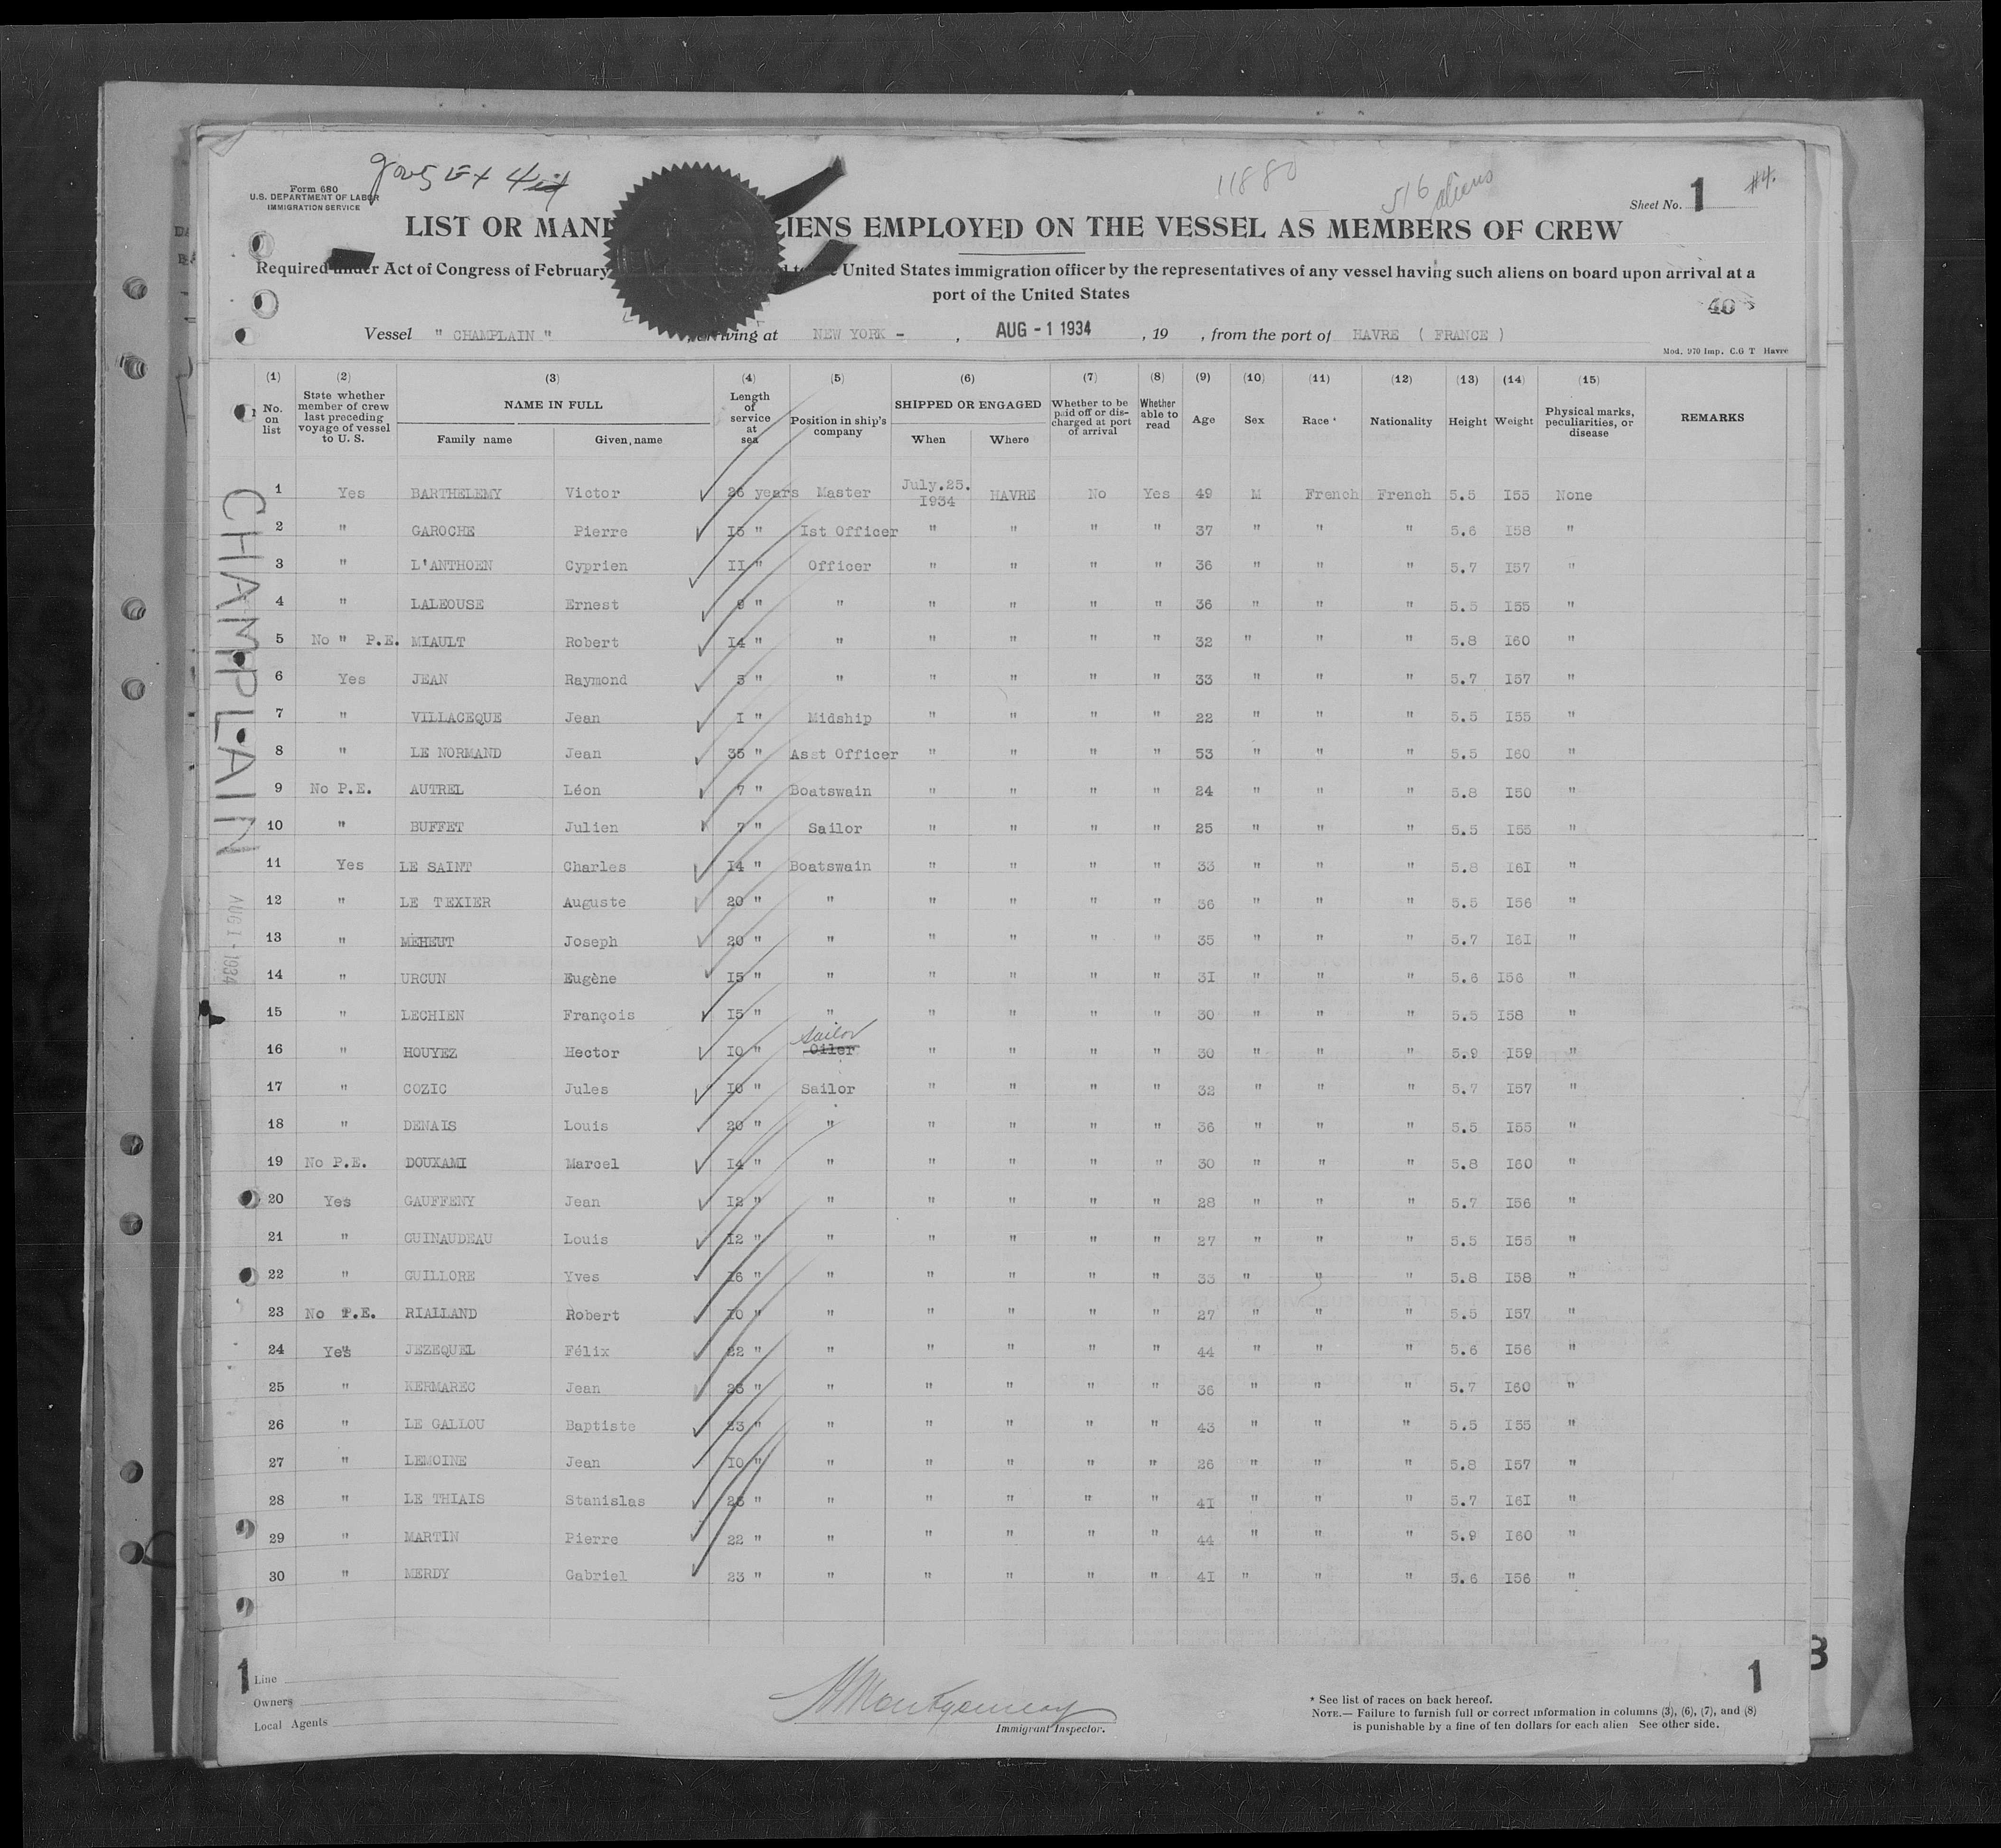 11880
516 aliens
#4.
Form 680
U.S. DEPARTMENT OF LABOR
IMMIGRATION SERVICE
Sheet No. 1
LIST OR MANI IENS EMPLOYED ON THE VESSEL AS MEMBERS OF CREW
Required under Act of Congress of February United States immigration officer by the representatives of any vessel having such aliens on board upon arrival at a
port of the United States
40
Vessel " CHAMPLAIN " arriving at NEW YORK - , AUG - 1 1934 , 19 , from the port of HAVRE ( FRANCE )
Mod. 970 Imp. C.G T Havre
(1) (2) (3) (4) (5) (6) (7) (8) (9) (10) (11) (12) (13) (14) (15)
No. on list State whether member of crew last preceding voyage of vessel to U. S. NAME IN FULL Family name Given name Length of service at sea Position in ship's company SHIPPED OR ENGAGED When Where Whether to be paid off or discharged at port of arrival Whether able to read Age Sex Race * Nationality Height Weight Physical marks, peculiarities, or disease REMARKS
1 Yes BARTHELEMY Victor 26 years Master July.25. 1934 HAVRE No Yes 49 M French French 5.5 I55 None
2 " GAROCHE Pierre I5 " Ist Officer " " " " 37 " " " 5.6 I58 "
3 " L'ANTHOEN Cyprien II " Officer " " " " 36 " " " 5.7 I57 "
4 " LALEOUSE Ernest 9 " " " " " " 36 " " " 5.5 I55 "
5 No " P.E. MIAULT Robert I4 " " " " " " 32 " " " 5.8 I60 "
6 Yes JEAN Raymond 5 " " " " " " 33 " " " 5.7 I57 "
7 " VILLACEQUE Jean I " Midship " " " " 22 " " " 5.5 I55 "
8 " LE NORMAND Jean 35 " Asst Officer " " " " 53 " " " 5.5 I60 "
9 No P.E. AUTREL Léon 7 " Boatswain " " " " 24 " " " 5.8 I50 "
10 " BUFFET Julien 7 " Sailor " " " " 25 " " " 5.5 I55 "
11 Yes LE SAINT Charles I4 " Boatswain " " " " 33 " " " 5.8 I6I "
12 " LE TEXIER Auguste 20 " " " " " " 36 " " " 5.5 I56 "
13 " MEHEUT Joseph 20 " " " " " " 35 " " " 5.7 I6I "
14 " URCUN Eugène I5 " " " " " " 3I " " " 5.6 I56 "
15 " LECHIEN François I5 " " " " " " 30 " " " 5.5 I58 "
16 " HOUYEZ Hector I0 " Sailor Oiler " " " " 30 " " " 5.9 I59 "
17 " COZIC Jules I0 " Sailor " " " " 32 " " " 5.7 I57 "
18 " DENAIS Louis 20 " " " " " " 36 " " " 5.5 I55 "
19 No P.E. DOUXAMI Marcel I4 " " " " " " 30 " " " 5.8 I60 "
20 Yes GAUFFENY Jean I2 " " " " " " 28 " " " 5.7 I56 "
21 " GUINAUDEAU Louis I2 " " " " " " 27 " " " 5.5 I55 "
22 " GUILLORE Yves I6 " " " " " " 33 " " " 5.8 I58 "
23 No P.E. RIALLAND Robert I0 " " " " " " 27 " " " 5.5 I57 "
24 Yes JEZEQUEL Félix 22 " " " " " " 44 " " " 5.6 I56 "
25 " KERMAREC Jean 26 " " " " " " 36 " " " 5.7 I60 "
26 " LE GALLOU Baptiste 23 " " " " " " 43 " " " 5.5 I55 "
27 " LEMOINE Jean I0 " " " " " " 26 " " " 5.8 I57 "
28 " LE THIAIS Stanislas 26 " " " " " " 4I " " " 5.7 I6I "
29 " MARTIN Pierre 22 " " " " " " 44 " " " 5.9 I60 "
30 " MERDY Gabriel 23 " " " " " " 4I " " " 5.6 I56 "
CHAMPLAIN
AUG 1 - 1934
1 Line
Owners
Local Agents
Montgomery
Immigrant Inspector.
1
* See list of races on back hereof.
NOTE.— Failure to furnish full or correct information in columns (3), (6), (7), and (8)
is punishable by a fine of ten dollars for each alien See other side.